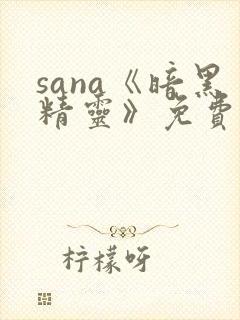 sana《暗黑
精靈》免費
柠檬呀